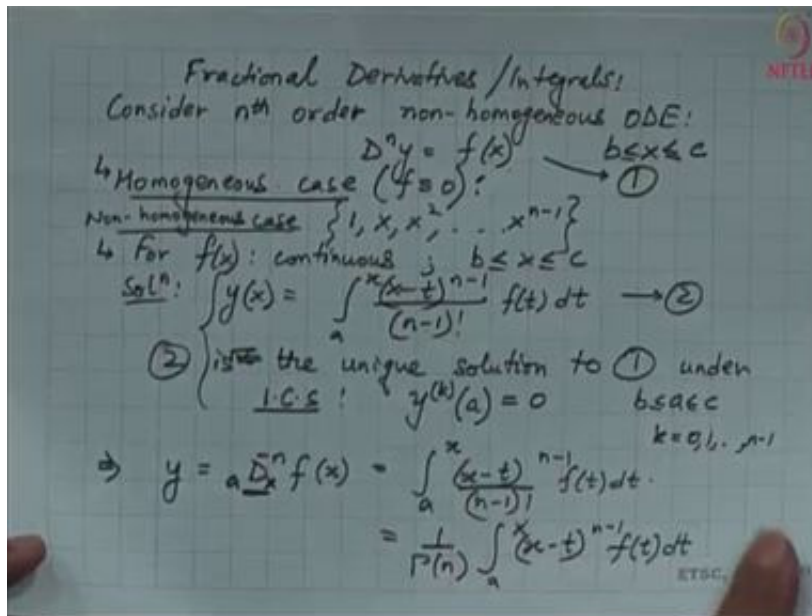 NPTEL
Fractional Derivatives/Integrals:
Consider nth order non-homogeneous ODE:
Dⁿy = f(x) b≤x≤c → ①
↳ Homogeneous case (f≡0):
Non-homogeneous case {1, x, x², ... xⁿ⁻¹}
↳ For f(x): continuous ; b ≤ x ≤ c
Solⁿ: y(x) = ∫ₐˣ (x-t)ⁿ⁻¹/(n-1)! f(t) dt → ②
② is the unique solution to ① under
I.C.s : y⁽ᵏ⁾(a) = 0 b≤a≤c
k=0,1,..,n-1
⇒ y = ₐDₓ⁻ⁿ f(x) = ∫ₐˣ (x-t)ⁿ⁻¹/(n-1)! f(t)dt.
= 1/Γ(n) ∫ₐˣ (x-t)ⁿ⁻¹ f(t)dt
ETSC,